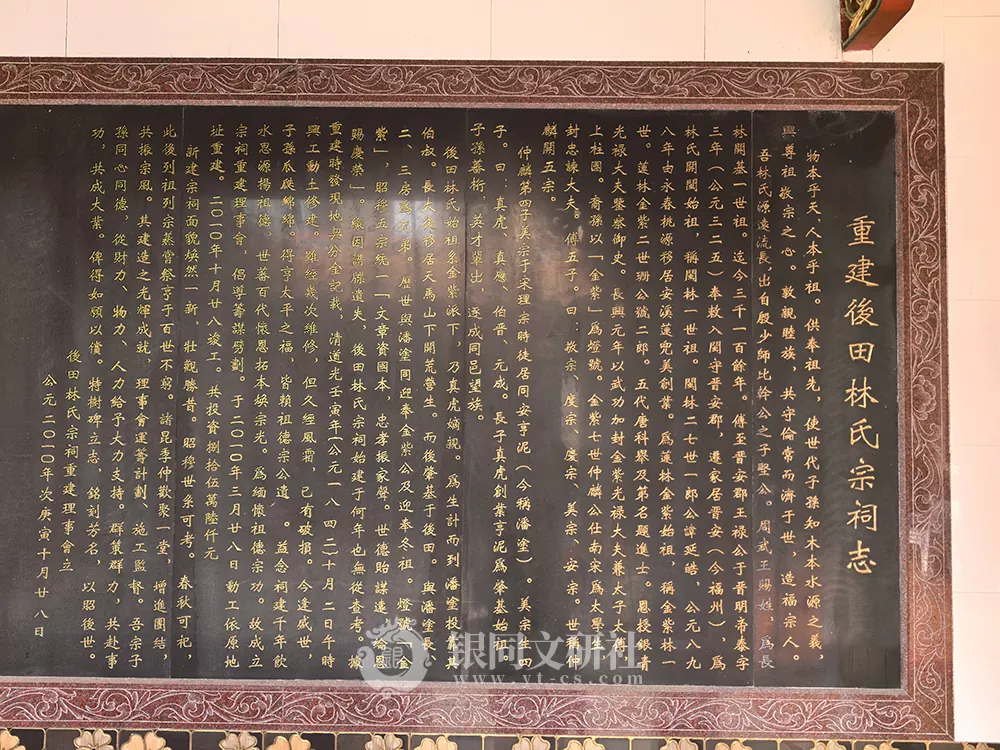 重建後田林氏宗祠志
物本乎天,人本乎祖。供奉祖先,使世代子孫知木本水源之義,
興尊祖敬宗之心。敦親睦族,共守倫常而濟于世,造福宗人。
吾林氏源遠流長,出自殷少師比幹公之子堅公。周武王賜姓,爲長
林開基一世祖。迄今三千一百餘年。傳至晋安郡王禄公于晋明帝泰字
三年(公元三二五)奉敕入閩守晋安郡,遷家居晋安(今福州),爲
林氏開閩始祖,稱閩林一世祖。閩林二七世一郎公諱延皓,公元八九
八年由永春桃源移居安溪蓮兜美創業。爲蓮林金紫始祖,稱金紫林一
世。蓮林金紫二世珊公號二郎。五代唐科舉及第名題進士。恩授銀青
光禄大夫監察御史。長興元年以武功加封金紫光禄大夫兼太子太傅
上柱國。裔孫以「金紫」爲燈號。金紫七世仲麟公仕南宋爲太學生
封忠諫大夫。傳五子。曰:敬宗、度宗、慶宗、美宗、安宗。世稱仲
麟開五宗。
仲麟第四子美宗于宋理宗時徒居同安亨泥(今稱潘塗)。美宗生四
子。曰:真虎、真應、伯晋、元成。長子真虎創業亨泥爲肇基始祖。
子孫蕃衍,英才輩出,遂成同邑望族。
後田林氏始祖系金紫派下,乃真虎公嫡親。爲生計而到潘塗投靠其
伯叔。長大後移居天馬山下開荒營生。而後肇基于後田。與潘塗長、
二、三房爲兄弟。歷世與潘塗同迎奉金紫公及迎奉冬祖。燈號「金
紫」,昭穆五宗統一「文章資國本,忠孝振家聲。世德貽謀遠,綸恩
賜慶榮」。緣因譜牒遺失,後田林氏宗祠始建于何年也無從查考。故
重建時發現地契分金記載,清道光壬寅年(公元一八四二)十月二日午時
興工動土修建,雖經幾次維修,但久經風霜,已有破損。今逢盛世,
子孫瓜瓞綿綿。得享太平之福,皆賴祖德宗公遺。益念祠建千年飲
水思源揚祖德,世蕃百代懷恩拓本焕宗光。爲緬懷祖德宗功。故成立
宗祠重建理事會,倡導籌謀劈劃。于二0一0年三月廿八日動工依原地
址重建。二00年十月廿八竣工。共投資捌拾伍萬陸仟元
新建宗祠面貌焕然一新,壯觀勝昔,昭穆世系可考。春秋可祀,
此後列祖列宗蒸嘗祭亨于百世不窮。諸昆季仲歡聚一堂,增進團結,
共振宗風。其建造之光輝成就,理事會運籌計劃、施工監督,吾宗子
孫同心同德,從財力、物力、人力給予大力支持。群策群力,共赴事
功,共成大業。俾得如願以償。特樹碑立志,銘刻芳名,以昭後世。
後田林氏宗祠重建理事會立
公元二0一0年次庚寅十月廿八日
銀同文研社
www.yt-cs.com